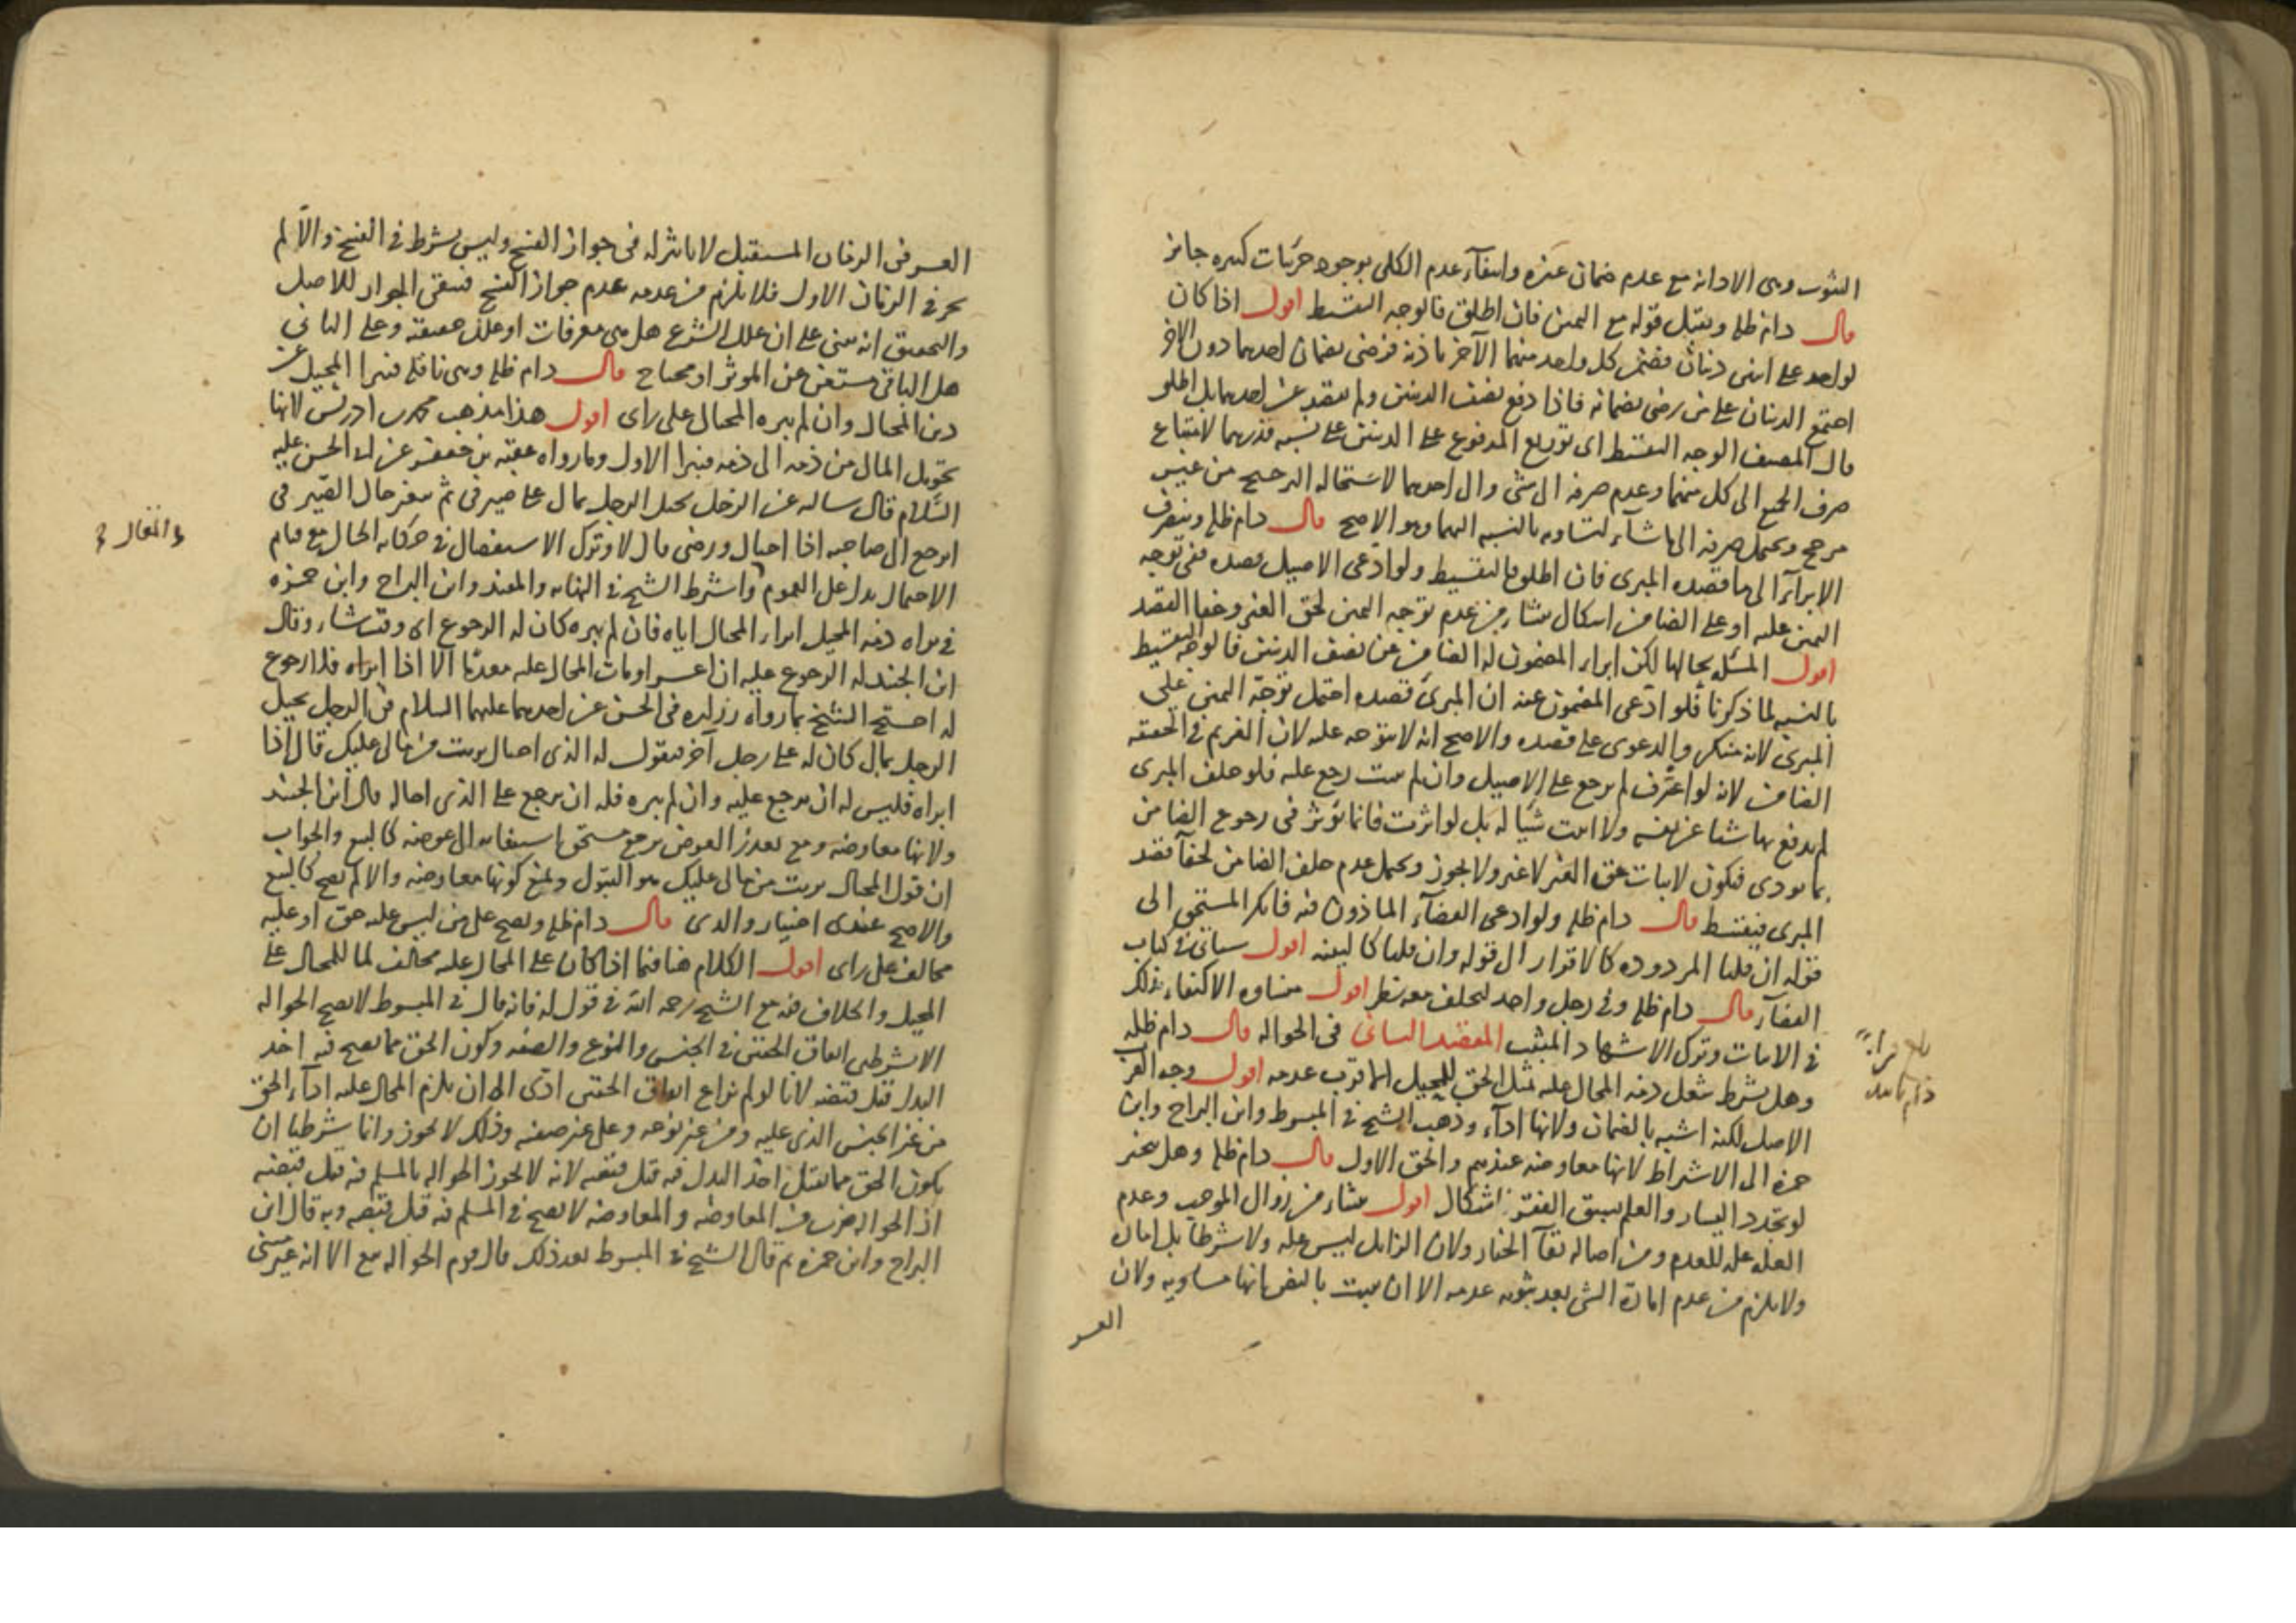 الثبوت وهى الادانه مع عدم ضمان غيره وانتفآء عدم الكلى بوجود جزئيات كثيره جايز
قال دام ظله ويقبل قوله مع اليمين فان اطلق فالوجه التقسيط اقول اذا كان
لواحد على اثنى دينان فضمن كل واحد منهما الآخر باذنه فرضى بضمان احدهما دون الاخر
اجتمع الدينان على من رضى بضمانه فاذا دفع نصف الدينين ولم يقصد عن احدهما بل اطلق
قال المصنف الوجه التقسيط اى توزيع المدفوع على الدينين على نسبه قدرهما لامتناع
صرف الجميع الى كل منهما وعدم صرفه الى شى وال احدهما لاستحاله الترجيح من غير
مرجح ويحتمل صرفه الى ما شآء لتساويه بالنسبه اليهما وهو الاصح قال دام ظله وينصرف
الابرآء الى ما قصده المبرى فان اطلق فالتقسيط ولو ادعى الاصيل قصده ففى توجه
اليمين عليه او على الضامن اشكال ينشأ من عدم توجه اليمين لحق الغير وخفا القصد
اقول المسئله بحالها لكن ابراء المضمون له الضامن من نصف الدينين فالوجه التقسيط
بالنسبه لما ذكرنا فلو ادعى المضمون عنه ان المبرئ قصده احتمل توجّه اليمين على
المبرئ لانه منكر والدعوى على قصده والاصح انه لا يتوجه عليه لان الغريم فى الحقيقه
الضامن لانه لو اعترف لم يرجع على الاصيل وان لم يثبت رجع عليه فلو حلف المبرى
لم يدفع بها شيئا عن نفسه ولا اثبت شيًا له بل لو اثرت فانما تؤثر فى رجوع الضامن
بما يودى فيكون لاثبات حق الغير لا غير ولا يجوز ويحتمل عدم حلف الضامن لخفآ قصد
المبرى فيقسط قال دام ظله ولو ادعى القضآء الماذون فيه فانكر المستحق الى
قوله ان قلنا المردوده كالاقرار ال قوله وان قلنا كالبينه اقول سياتى فى كتاب
القضآء قال دام ظله وفى رجل واحد ليحلف معه نظر اقول منشاوه الاكتفاء بذلك
فى الاثبات وترك الاشهاد المثبت المقصد الثانى فى الحواله قال دام ظله
وهل يشترط شغل ذمه المحال عليه بمثل الحق للمحيل الاقرب عدمه اقول وجه القرب
الاصل لكنه اشبه بالضمان ولانها ادآء وذهب الشيخ فى المبسوط وابن البراج وابن
حمزه الى الاشتراط لانها معاوضه عندهم والحق الاول قال دام ظله وهل يتخير
لو تجدد اليسار والعلم بسبق الفقر اشكال اقول ينشاء من زوال الموجب وعدم
العله عله للعدم ومن اصاله بقآ الخيار ولان الزايل ليس عله ولا شرطا بل اماره
ولا يلزم من عدم امارة الشى بعد ثبوته عدمه الا ان يثبت بالنص انها مساويه ولان
العسر
بلغ قراءة
دام
العسر فى الزمان المستقبل لا تاثير له فى جواز الفسخ وليس بشرط فى الفسخ والّا لم
يجز فى الزمان الاول فلا يلزم من عدمه عدم جواز الفسخ فيبقى الجواز للاصل
والتحقيق انه مبنى على ان علل الشرع هل هى معرفات او علل حقيقه وعلى الثانى
هل الباقى مستغن عن الموثر او محتاج قال دام ظله وهى ناقله فيبرا المحيل عن
دين المحال وان لم يبره المحال على راى اقول هذا مذهب محمد بن ادريس لانها
تحويل المال من ذمه الى ذمه فيبرا الاول وما رواه عقبه بن جعفر عن ابى الحسن عليه
السّلام قال ساله عن الرجل يحيل الرجل بمال على صيرفى ثم يتغير حال الصيرفى
ايرجع ال صاحبه اذا احتال ورضى قال لا وترك الاستفصال فى حكايه الحال مع قيام
الاحتمال يدل على العموم واشترط الشيخ فى النهايه والمفيد وابن البراج وابن حمزه
فى براه ذمه المحيل ابراء المحال اياه فان لم يبره كان له الرجوع اى وقت شاء وقال
ابن الجنيد له الرجوع عليه ان اعسر او مات المحال عليه معدمًا الا اذا ابراه فلا رجوع
له احتج الشيخ بما رواه زراره فى الحسن عن احدهما عليهما السلام فى الرجل يحيل
الرجل بمال كان له على رجل آخر فيقول له الذى احتال برئت من مالى عليك قال اذا
ابراه فليس له ان يرجع عليه وان لم يبره فله ان يرجع على الذى احاله قال ابن الجنيد
ولانها معاوضه ومع تعذر العوض يرجع مستحق استيفايه ال عوضه كالبيع والجواب
ان قول المحال برئت من مالى عليك هو القبول ونمنع كونها معاوضه والا لم تصح كالبيع
والاصح عندى اختيار والدى قال دام ظله وتصح على من ليس عليه حق او عليه
مخالف على راى اقول الكلام هنا فيما اذا كان على المحال عليه مخالف لما للمحال على
المحيل والخلاف فيه مع الشيخ رحمه الله فى قول له فانه قال فى المبسوط لا تصح الحواله
الا بشرطين اتفاق الحقين فى الجنس والنوع والصفه وكون الحق مما يصح فيه اخذ
البدل قبل قبضه لانا لو لم نراع اتفاق الحقين ادّى الى ان يلزم المحال عليه ادآء الحق
من غير الجنس الذى عليه ومن غير نوعه وعلى غير صفته وذلك لا يجوز وانما شرطنا ان
يكون الحق مما يقبل اخذ البدل فيه قبل قبضه لانه لا تجوز الحواله بالمسلم فيه قبل قبضه
اذ الحواله ضرب من المعاوضه والمعاوضه لا تصح فى المسلم فيه قبل قبضه وبه قال ابن
البراج وابن حمزه ثم قال الشيخ فى المبسوط بعد ذلك قال قوم الحواله بيع الا انه غير مبنى